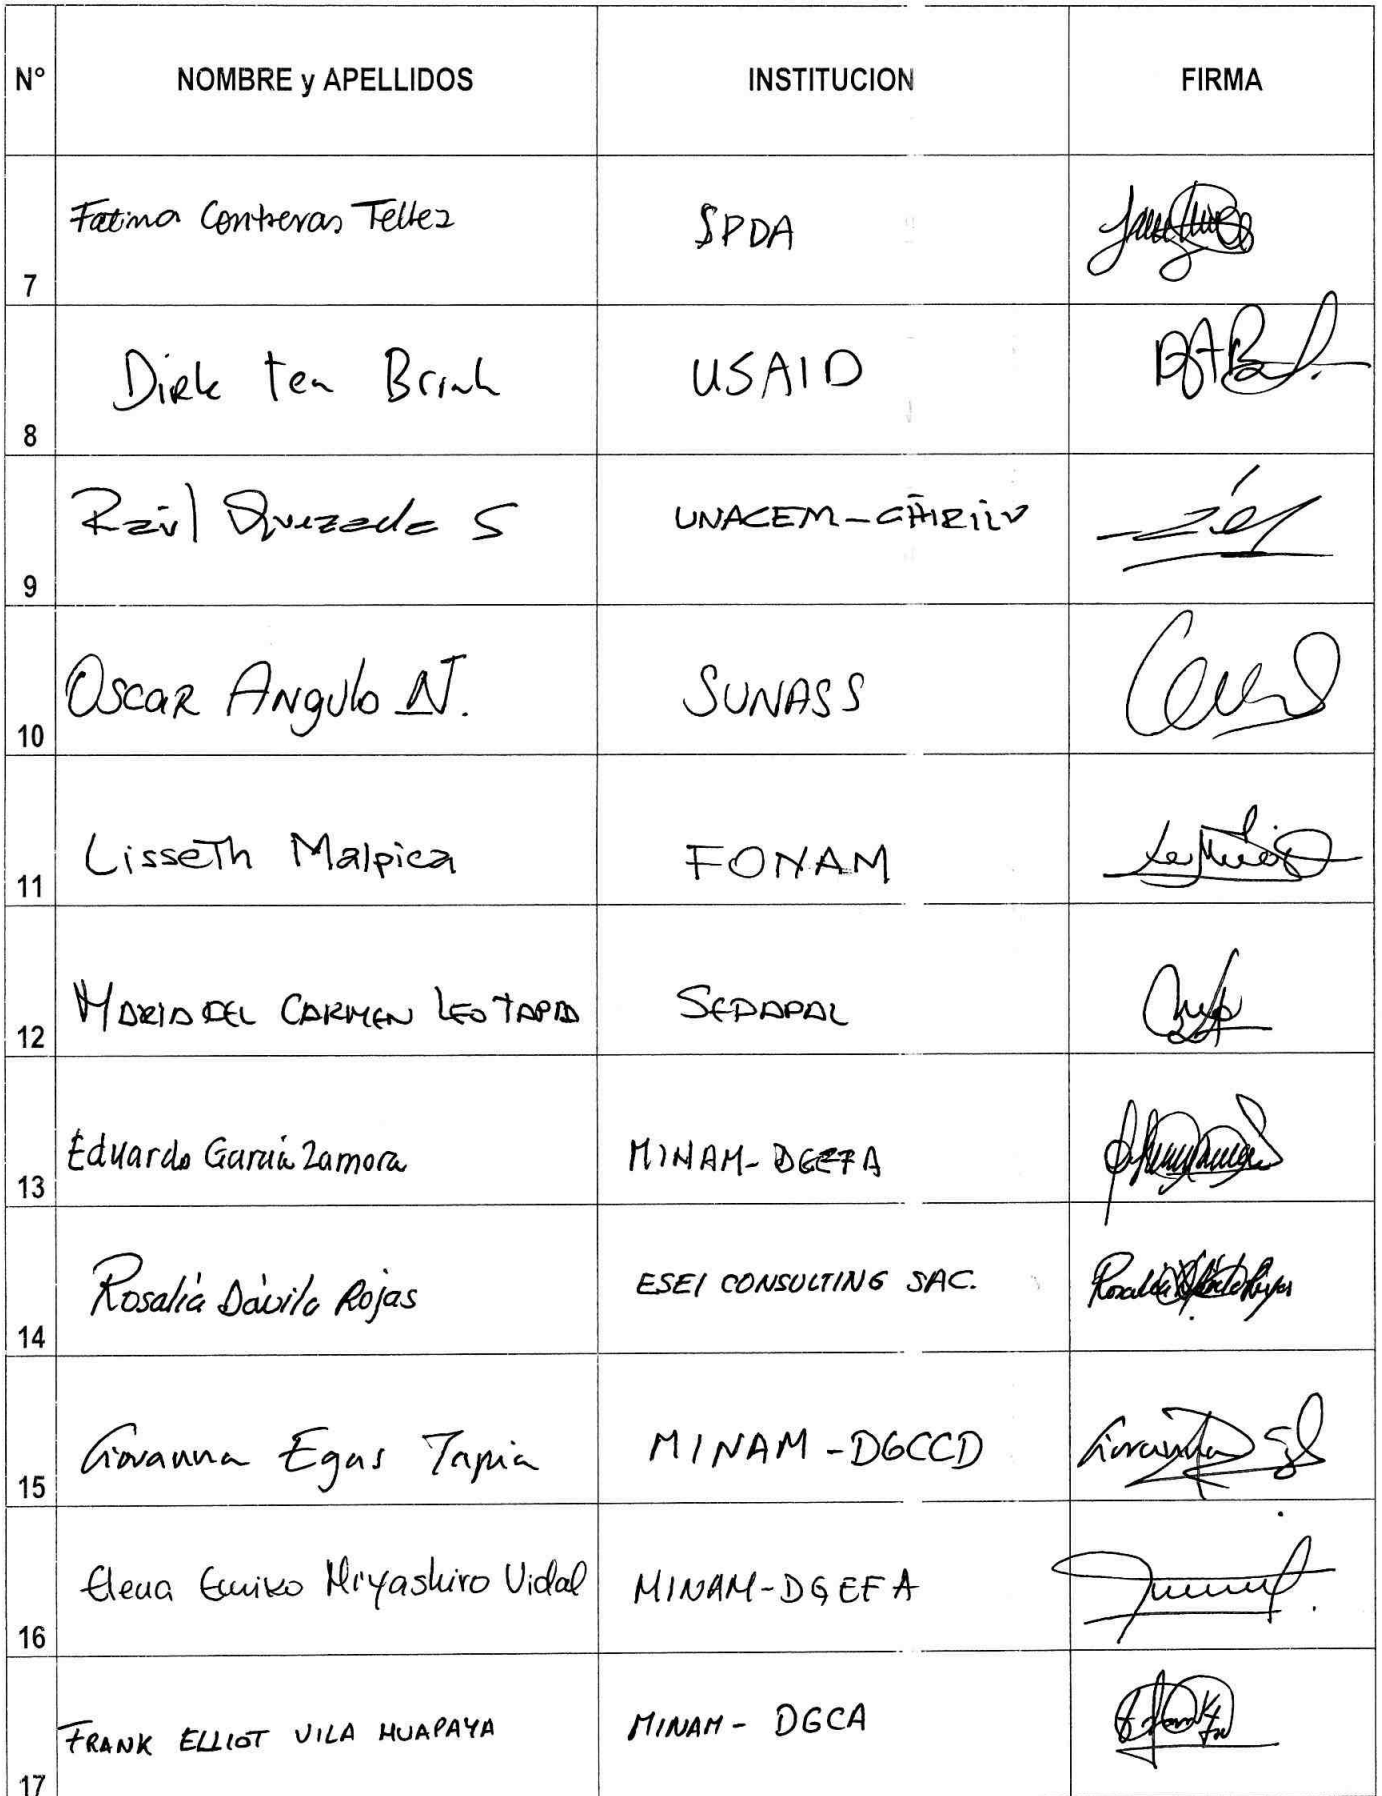 N° NOMBRE y APELLIDOS INSTITUCION FIRMA
7 Fatima Contreras Tellez SPDA
8 Dirk ten Brink USAID
9 Raúl Quezada S UNACEM-
10 Oscar Angulo N. SUNASS
11 Lisseth Malpica FONAM
12 MARIA DEL CARMEN LEO TAPIA SEDAPAL
13 Eduardo García Zamora MINAM-DGEFA
14 Rosalía Dávila Rojas ESEI CONSULTING SAC.
15 Giovanna Egas Tapia MINAM-DGCCD
16 Elena Emiko Miyashiro Vidal MINAM-DGEFA
17 FRANK ELLIOT VILA HUAPAYA MINAM- DGCA